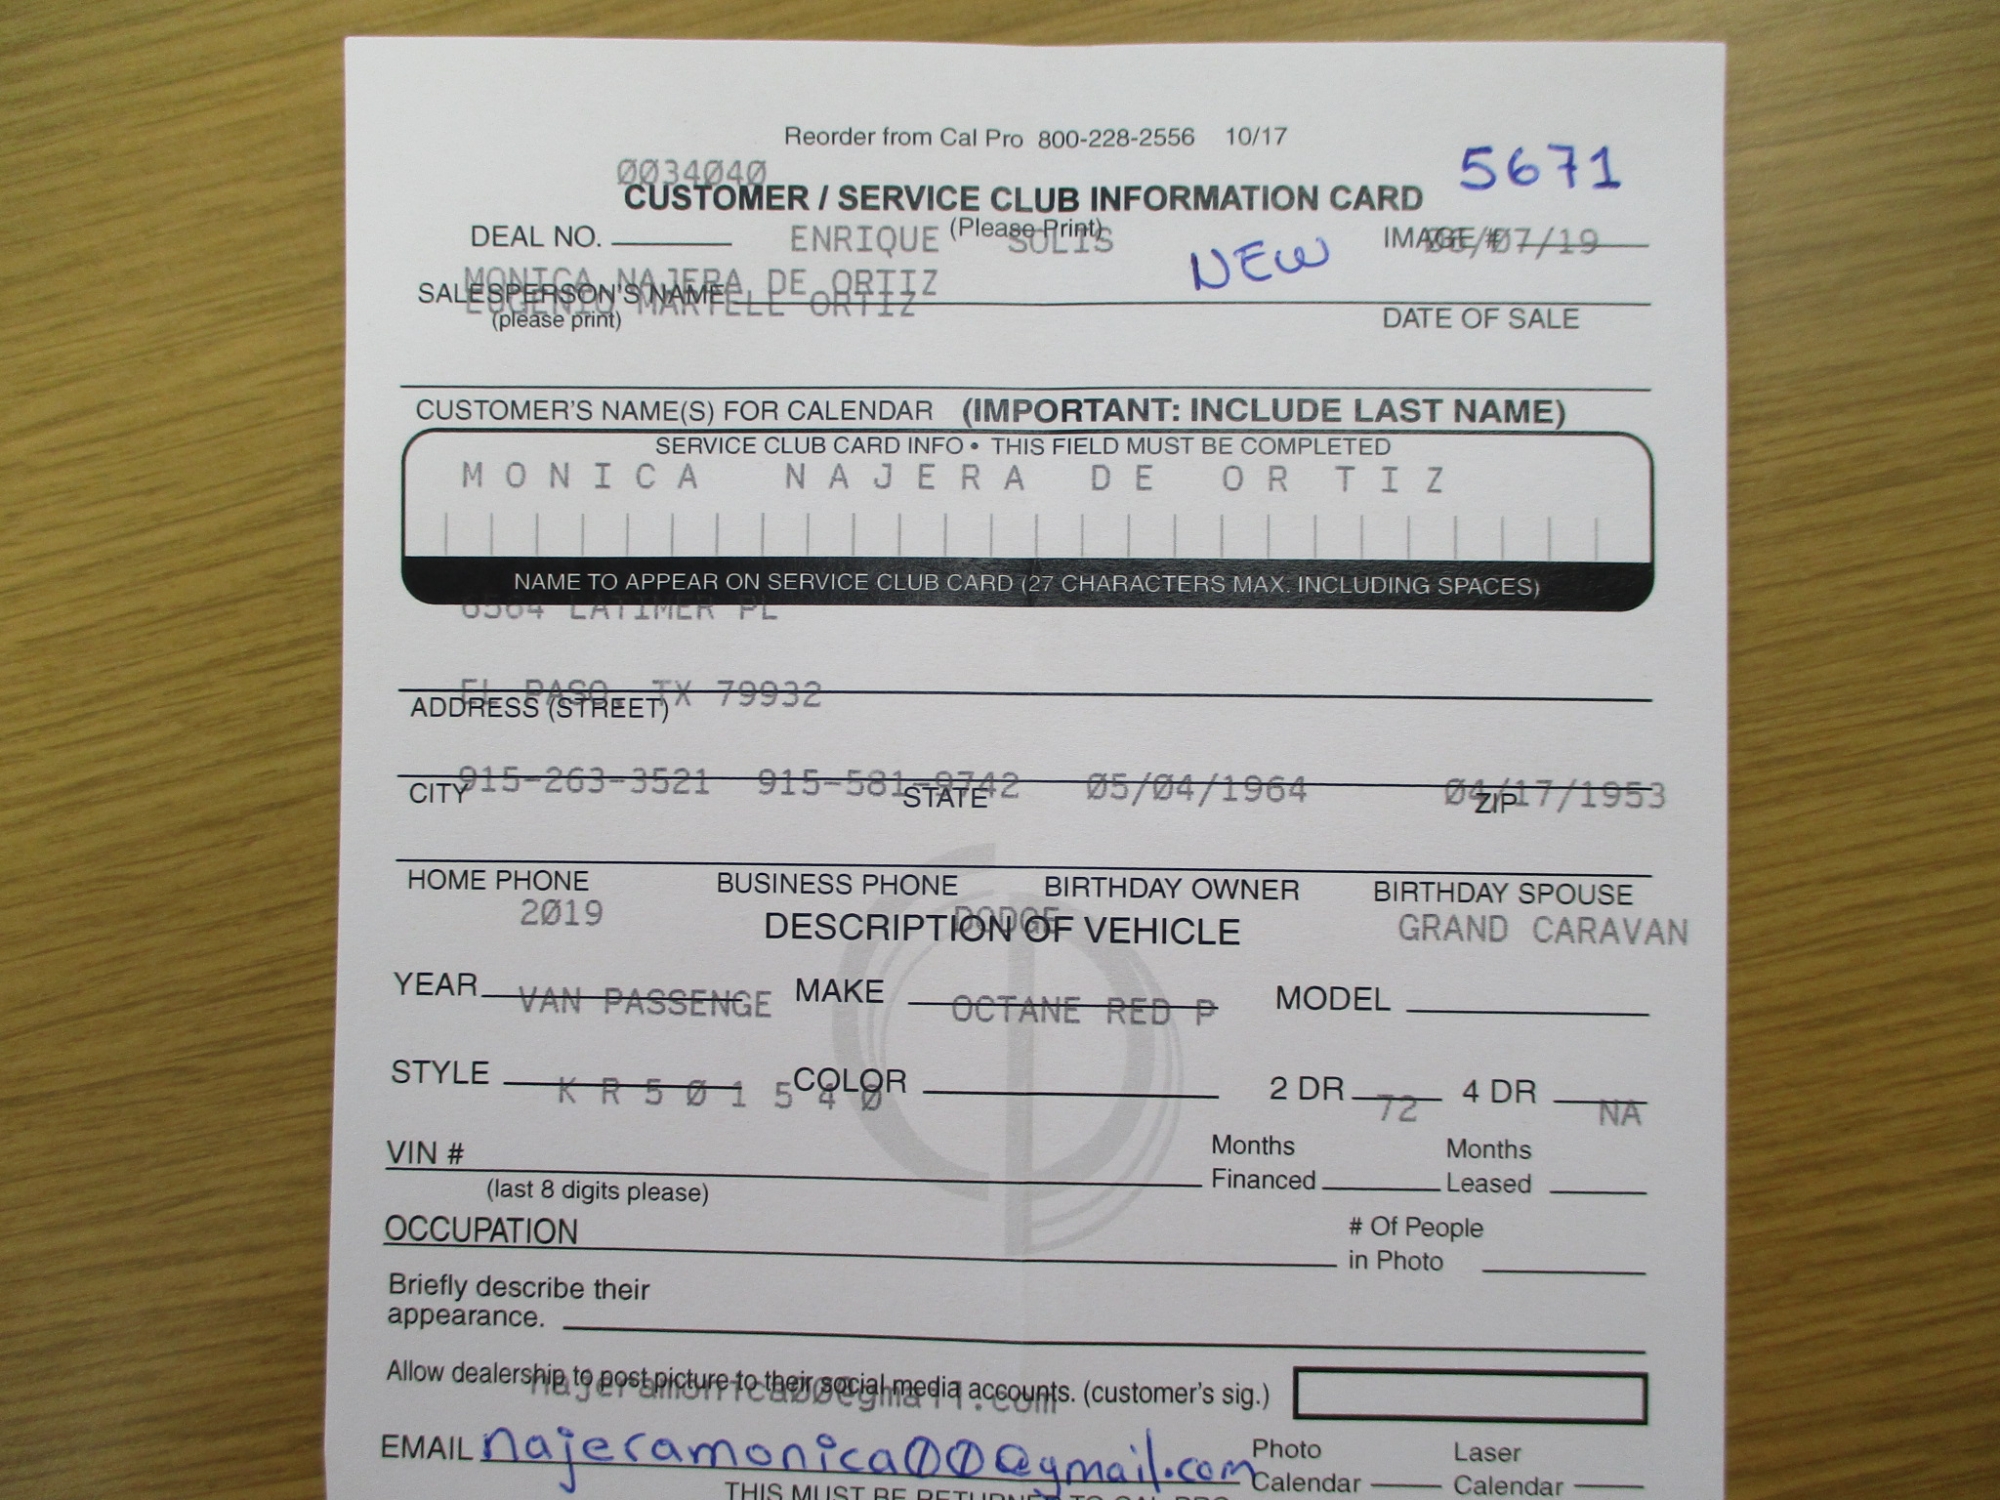 Reorder from Cal Pro 800-228-2556 10/17
5671
0034040
CUSTOMER / SERVICE CLUB INFORMATION CARD
(Please Print)
DEAL NO. ENRIQUE SOLIS IMAGE # /07/19
NEW
MONICA NAJERA DE ORTIZ
SALESPERSON'S NAME
EUGENIO MARTELL ORTIZ
(please print) DATE OF SALE
CUSTOMER'S NAME(S) FOR CALENDAR (IMPORTANT: INCLUDE LAST NAME)
SERVICE CLUB CARD INFO • THIS FIELD MUST BE COMPLETED
MONICA NAJERA DE ORTIZ
NAME TO APPEAR ON SERVICE CLUB CARD (27 CHARACTERS MAX. INCLUDING SPACES)
6564 LATIMER PL
EL PASO, TX 79932
ADDRESS (STREET)
915-263-3521 915-581-9742 05/04/1964 04/17/1953
CITY STATE ZIP
HOME PHONE BUSINESS PHONE BIRTHDAY OWNER BIRTHDAY SPOUSE
2019 DODGE GRAND CARAVAN
DESCRIPTION OF VEHICLE
YEAR MAKE MODEL
VAN PASSENGE OCTANE RED P
STYLE COLOR 2 DR 4 DR
KR501540 72 NA
VIN # Months Financed Months Leased
(last 8 digits please)
OCCUPATION # Of People in Photo
Briefly describe their
appearance.
Allow dealership to post picture to their social media accounts. (customer's sig.)
najeramonica00@gmail.com
EMAIL najeramonica00@gmail.com Photo Calendar Laser Calendar
THIS MUST BE RETURNED TO CAL PRO